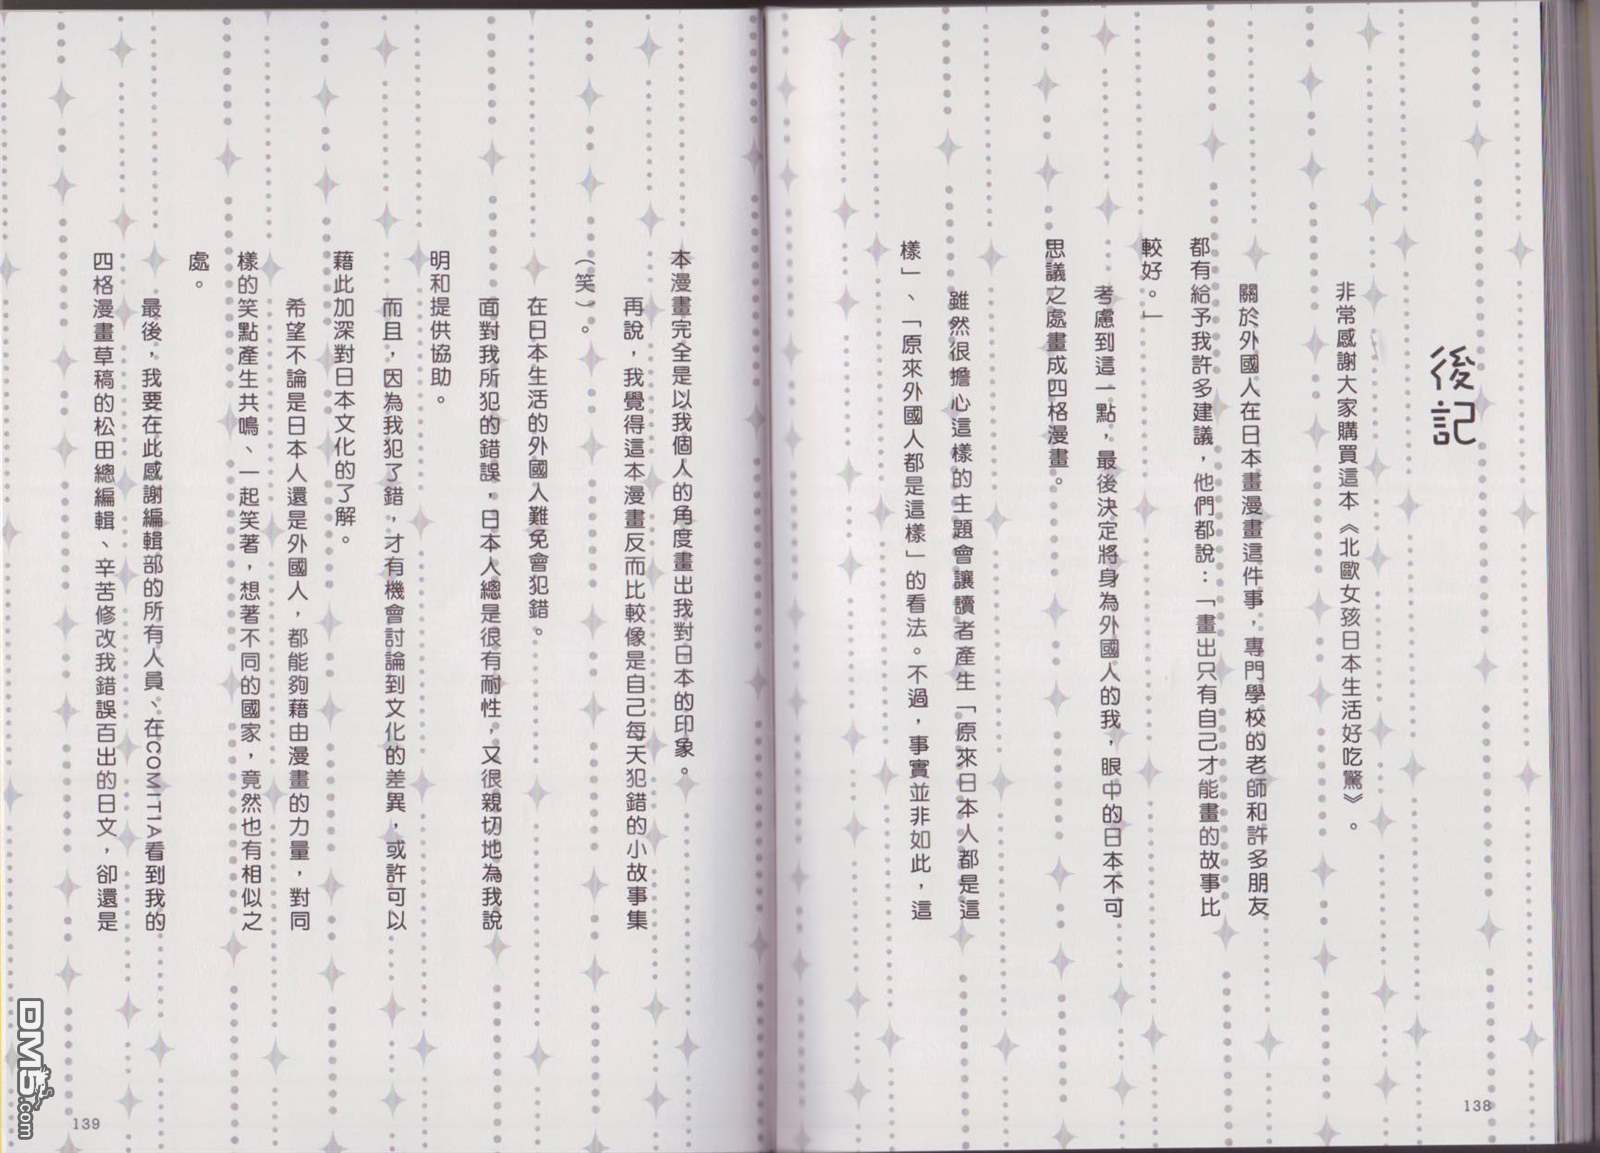 後記
非常感謝大家購買這本《北歐女孩日本生活好吃驚》。
關於外國人在日本畫漫畫這件事，專門學校的老師和許多朋友
都有給予我許多建議，他們都說：「畫出只有自己才能畫的故事比
較好。」
考慮到這一點，最後決定將身為外國人的我，眼中的日本不可
思議之處畫成四格漫畫。
雖然很擔心這樣的主題會讓讀者產生「原來日本人都是這
樣」、「原來外國人都是這樣」的看法。不過，事實並非如此，這
138
本漫畫完全是以我個人的角度畫出我對日本的印象。
再說，我覺得這本漫畫反而比較像是自己每天犯錯的小故事集
（笑）。
在日本生活的外國人難免會犯錯。
面對我所犯的錯誤，日本人總是很有耐性，又很親切地為我說
明和提供協助。
而且，因為我犯了錯，才有機會討論到文化的差異，或許可以
藉此加深對日本文化的了解。
希望不論是日本人還是外國人，都能夠藉由漫畫的力量，對同
樣的笑點產生共鳴、一起笑著，想著不同的國家，竟然也有相似之
處。
最後，我要在此感謝編輯部的所有人員、在COMITIA看到我的
四格漫畫草稿的松田總編輯、辛苦修改我錯誤百出的日文，卻還是
139
DM5.com